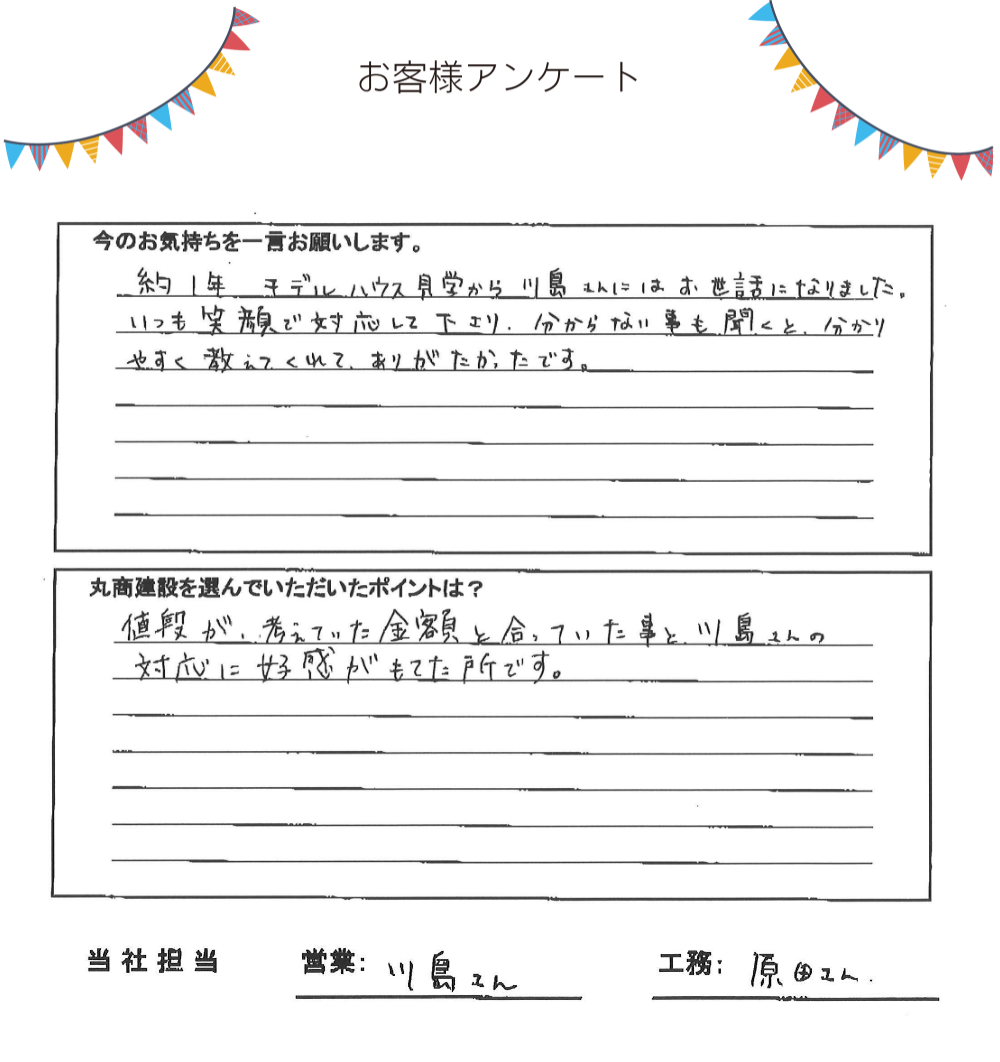 お客様アンケート
今のお気持ちを一言お願いします。
約1年 モデルハウス見学から川島さんにはお世話になりました。
いつも笑顔で対応して下さり、分からない事も聞くと、分かり
やすく教えてくれて、ありがたかったです。
丸商建設を選んでいただいたポイントは?
値段が、考えていた金額と合っていた事と川島さんの
対応に好感がもてた所です。
当社担当 営業: 川島さん 工務: 原田さん.